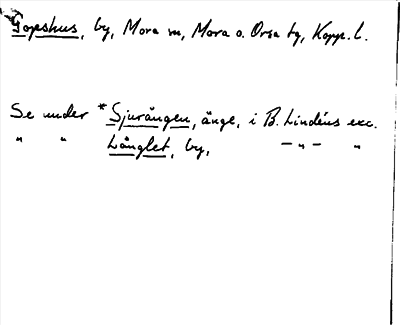 Gopshus, by, Mora sn, Mora o. Orsa tg, Kopp. l.
Se under *Sjurängen, änge, i B. Lindéns exc.
" " Långlet, by, — " — "